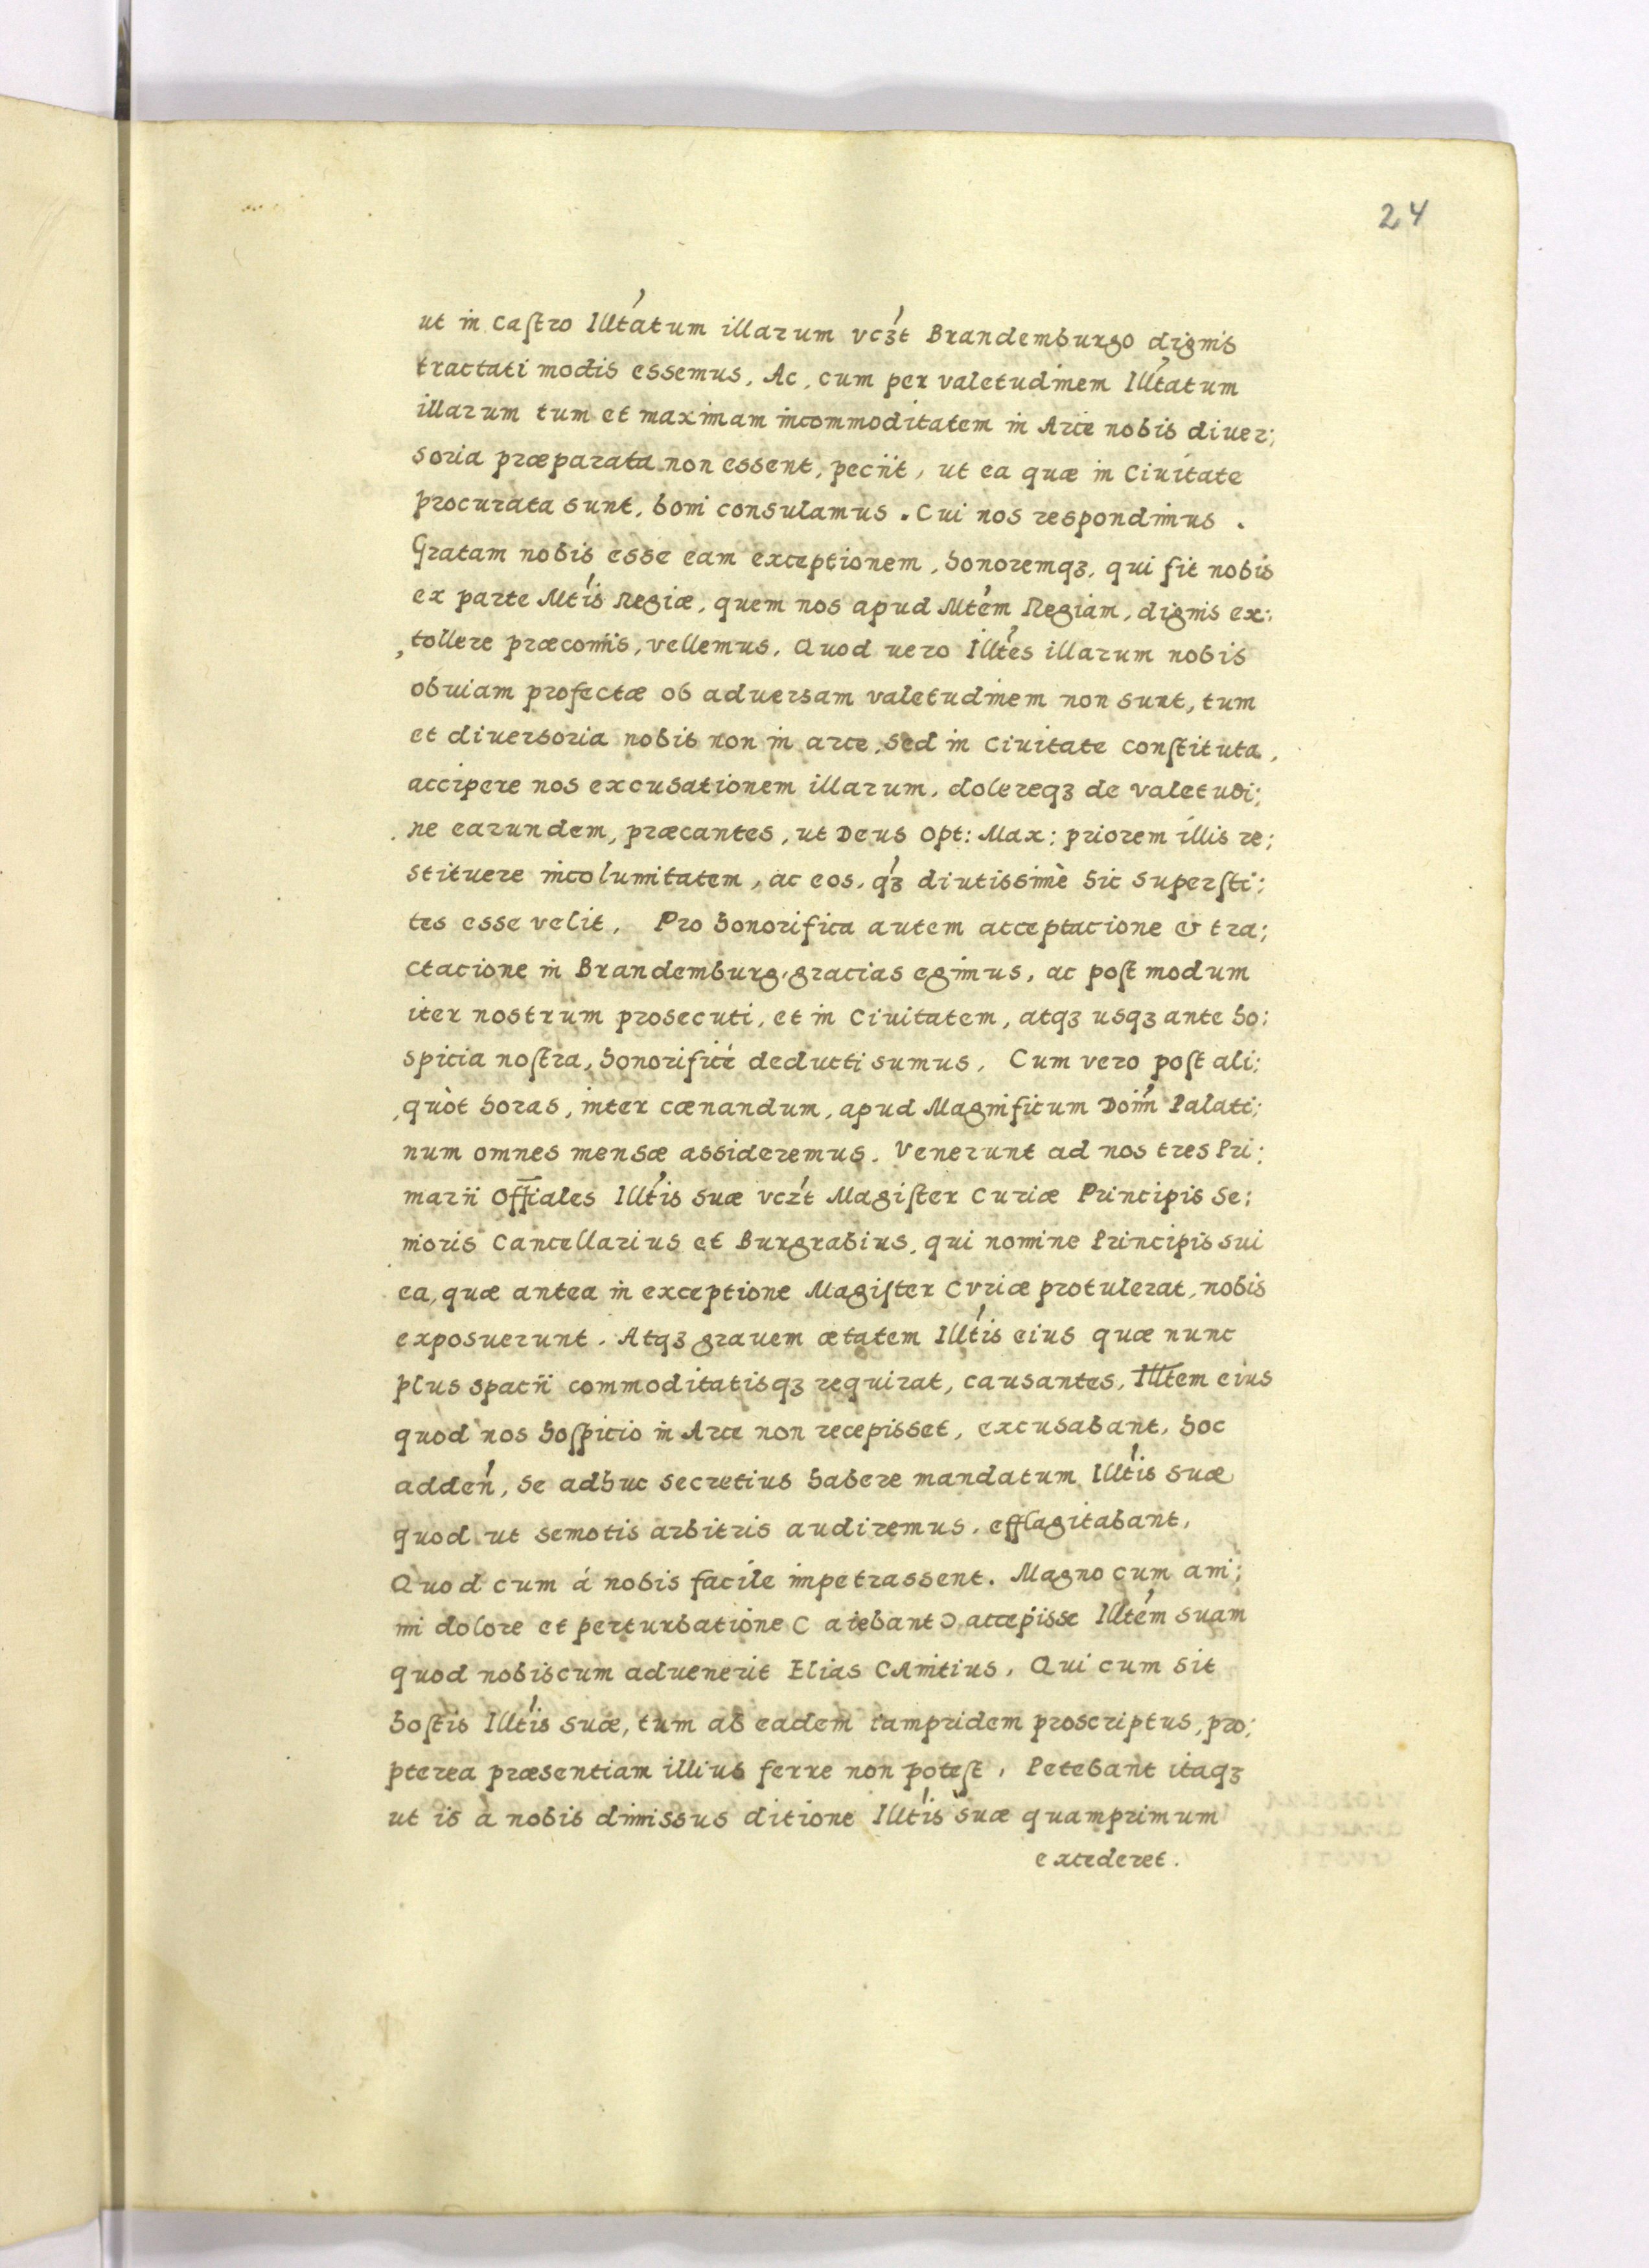 24
ut in Caſtro Illtatum illarum vcʒt Brandemburgo dignis
tractati modis essemus, Ac, cum per valetudinem Illtatum
illarum tum et maximam incommoditatem in Arce nobis diuer;
soria præparata non essent, peciit, ut ea quæ in Ciuitate
procurata sunt, boni consulamus. Cui nos respondimus.
Gratam nobis esse eam exceptionem, honoremqʒ, qui fit nobis
ex parte Mtis Regiæ, quem nos apud Mtem Regiam, dignis ex:
tollere præconiis, vellemus. Quod uero Illtes illarum nobis
obuiam profectæ ob aduersam valetudinem non sunt, tum
et diuersoria nobis non in arce, sed in Ciuitate conſtituta,
accipere nos excusationem illarum, dolereqʒ de valetudi;
ne earundem, præcantes, ut Deus Opt: Max: priorem illis re;
stituere incolumitatem, ac eos, qʒ diutissimè sic superſti:
tes esse velit. Pro honorifica autem acceptacione & tra;
ctacione in Brandemburg, gracias egimus, ac poſt modum
iter nostrum prosecuti, et in Ciuitatem, atqʒ usqʒ ante ho:
spitia noſtra, honorificè deducti sumus. Cum vero poſt ali;
quòt horas, inter cœnandum, apud Magnificum Doim Palati;
num omnes mensæ assideremus. Venerunt ad nos tres Pri;
marii Offiales Illtis suæ vczt Magiſter Curiæ Principis Se;
nioris Cancellarius et Burgrabius, qui nomine Principis sui
ea, quæ antea in exceptione Magiſter Cvriæ protulerat, nobis
exposuerunt. Atqʒ grauem ætatem Illtis eius quæ nunc
plus spacii commoditatisqʒ requirat, causantes, Illtem eius
quod nos hoſpitio in Arce non recepisset, excusabant, hoc
adden, se adhuc secretius habere mandatum Illtis suæ
quod ut semotis arbitris audiremus, efflagitabant,
Quod cum á nobis facile impetrassent. Magno cum ani;
mi dolore et perturbatione C aiebant Ɔ accepisse Illtem suam
quod nobiscum aduenerit Elias CAnitius, Qui cum sit
hoſtis Illtis suæ, tum ab eadem iampridem proscriptus, pro;
pterea præsentiam illius ferre non poteſt, Petebant itaqʒ
ut is à nobis dimissus ditione Illtis suæ quamprimum
excederet.